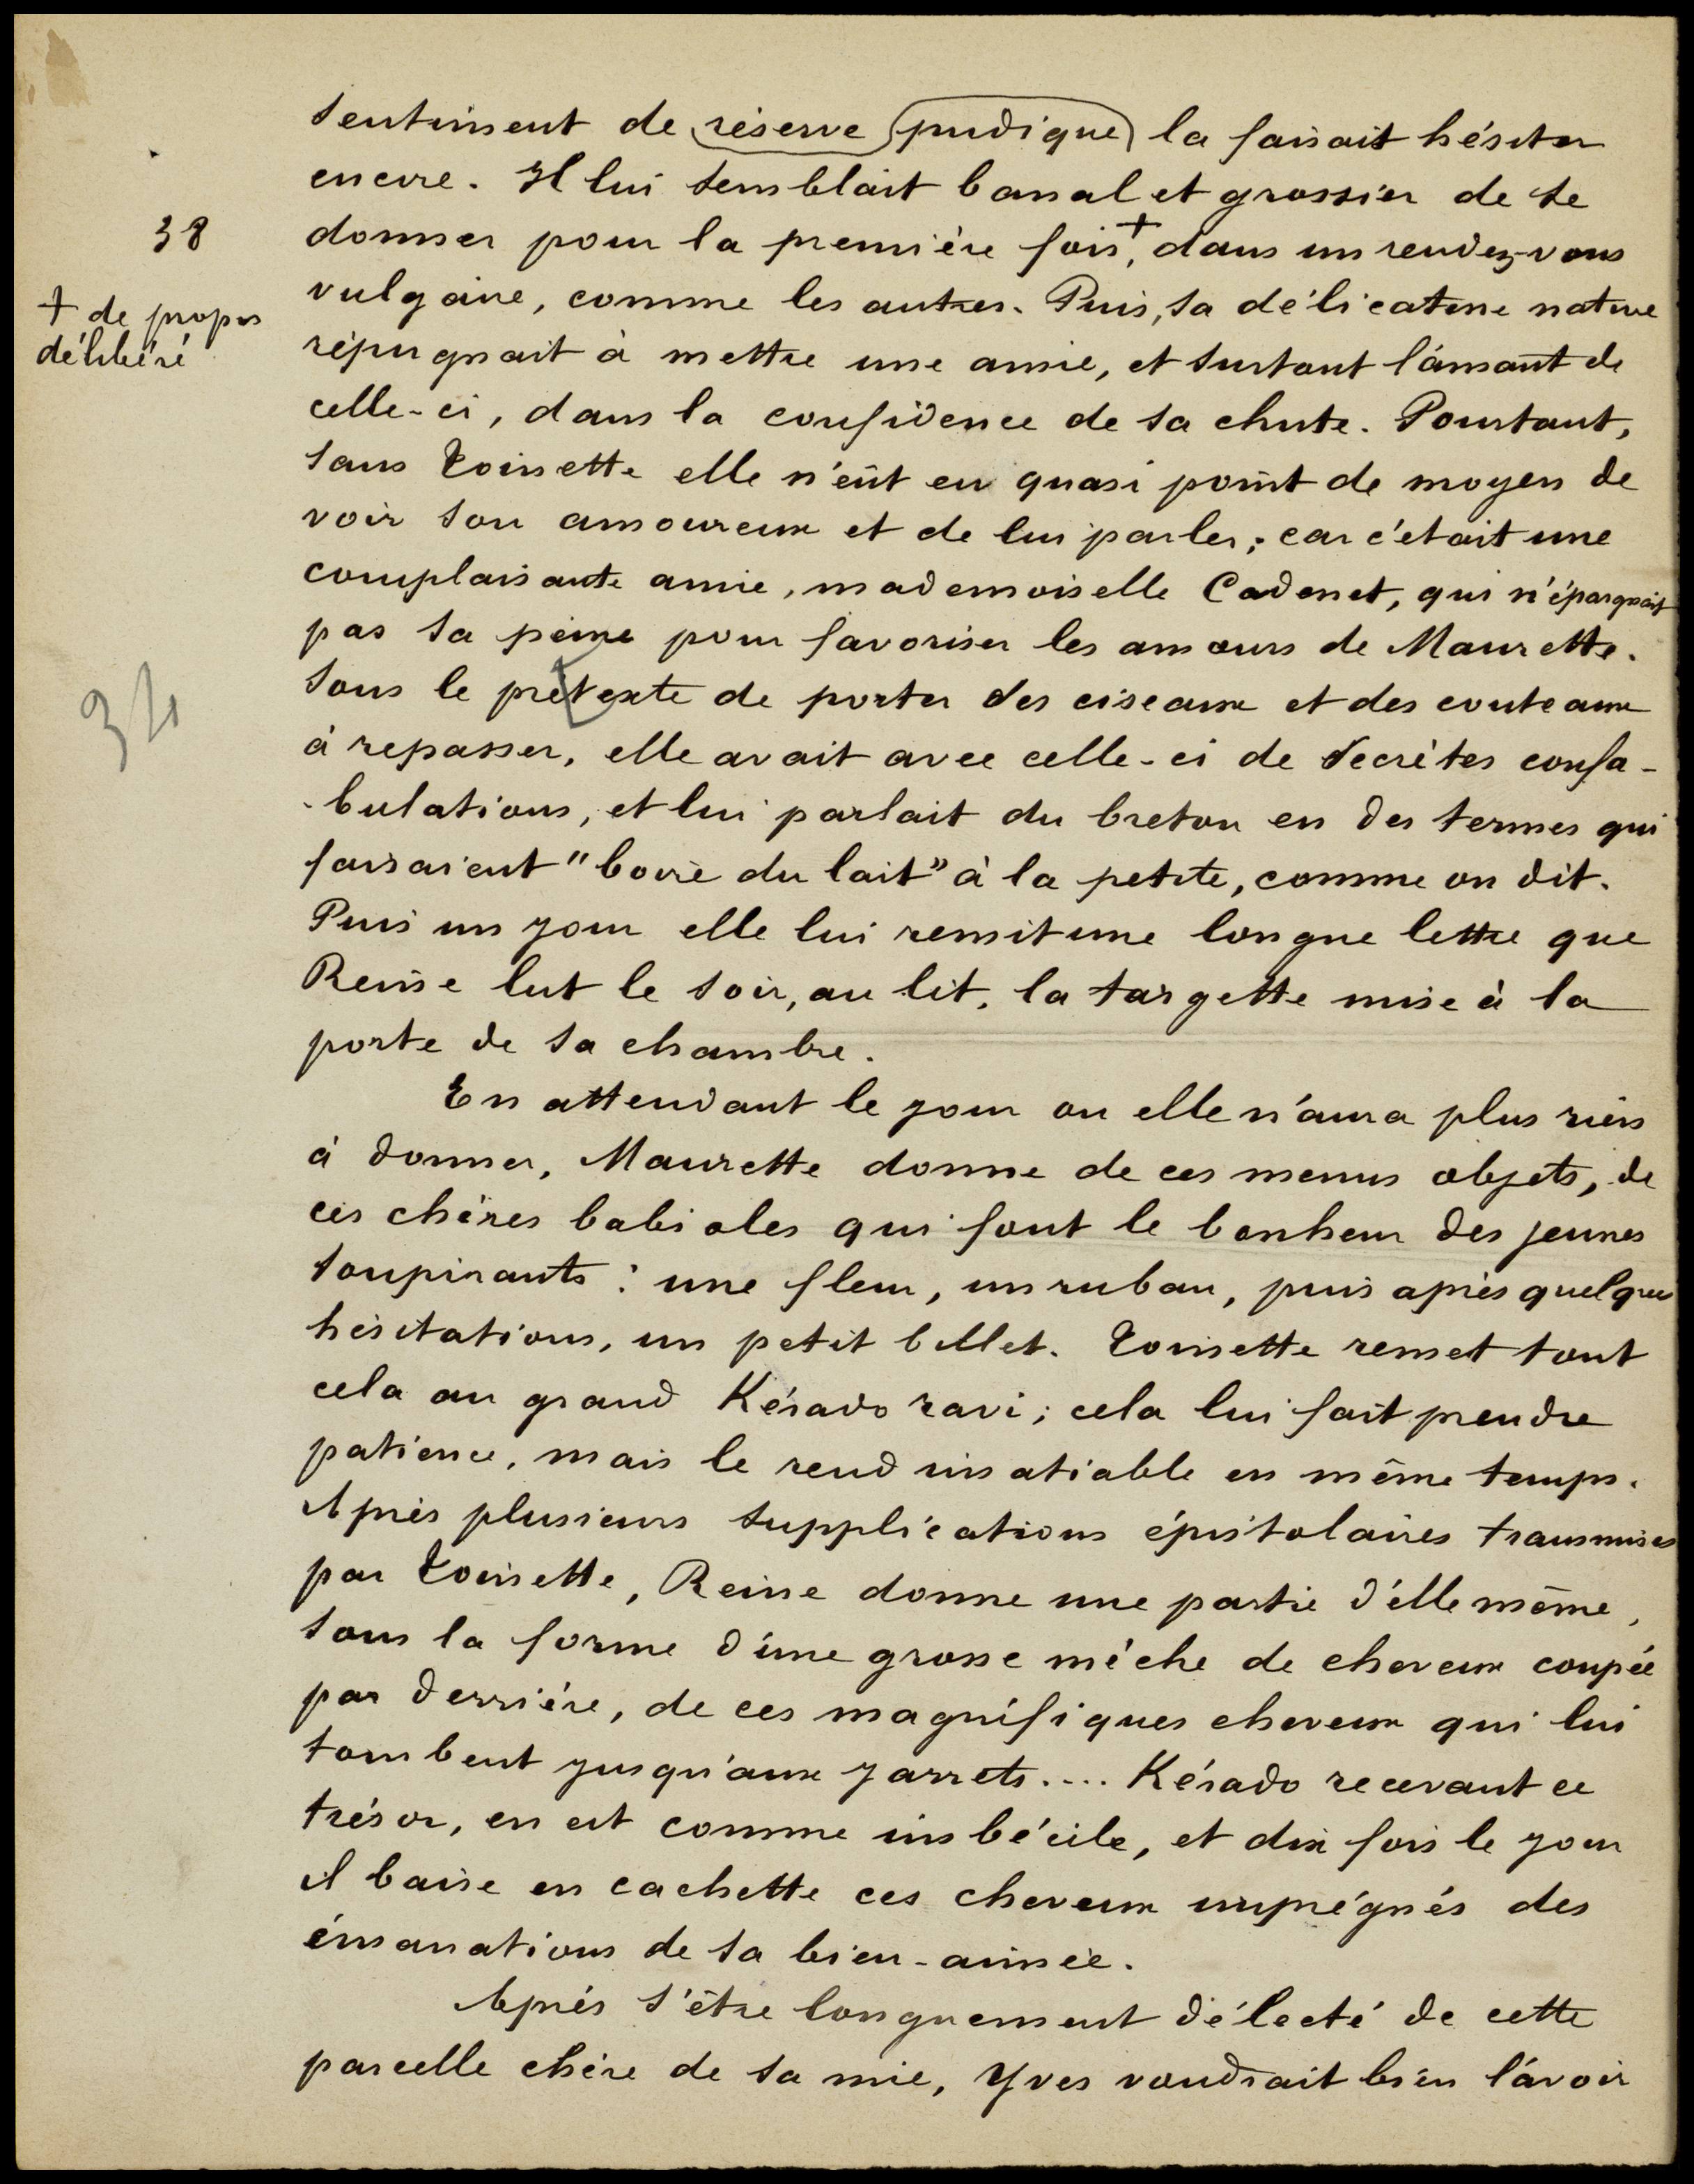 sentiment de réserve pudique la faisait hésiter
encore. Il lui semblait banal et grossier de se
38
donner pour la première fois +, dans un rendez-vous
vulgaire, comme les autres. Puis, sa délicate nature
+ de propos
délibéré
répugnait à mettre une amie, et surtout l'amant de
celle-ci, dans la confidence de sa chute. Pourtant,
sans Toinette elle n'eût eu quasi point de moyen de
voir son amoureux et de lui parler; car c'était une
complaisante amie, mademoiselle Cadenet, qui n'épargnait
pas sa peine pour favoriser les amours de Maurette.
34
Sous le prétexte de porter des ciseaux et des couteaux
à repasser, elle avait avec celle-ci de secrètes confa-
-bulations, et lui parlait du breton en des termes qui
faisaient "boire du lait" à la petite, comme on dit.
Puis un jour elle lui remit une longue lettre que
Reine lut le soir, au lit, la targette mise à la
porte de sa chambre.
En attendant le jour ou elle n'aura plus rien
à donner, Maurette donne de ces menus objets, de
ces chères babioles qui font le bonheur des jeunes
soupirants : une fleur, un ruban, puis après quelques
hésitations, un petit billet. Toinette remet tout
cela au grand Kérado ravi; cela lui fait prendre
patience, mais le rend insatiable en même temps.
Après plusieurs supplications épistolaires transmises
par Toinette, Reine donne une partie d'elle même,
sous la forme d'une grosse mèche de cheveux coupée
par derrière, de ces magnifiques cheveux qui lui
tombent jusqu'aux jarrets.... Kérado recevant ce
trésor, en est comme imbécile, et dix fois le jour
il baise en cachette ces cheveux imprégnés des
émanations de sa bien-aimée.
Après s'être longuement délecté de cette
parcelle chère de sa mie, Yves voudrait bien l'avoir